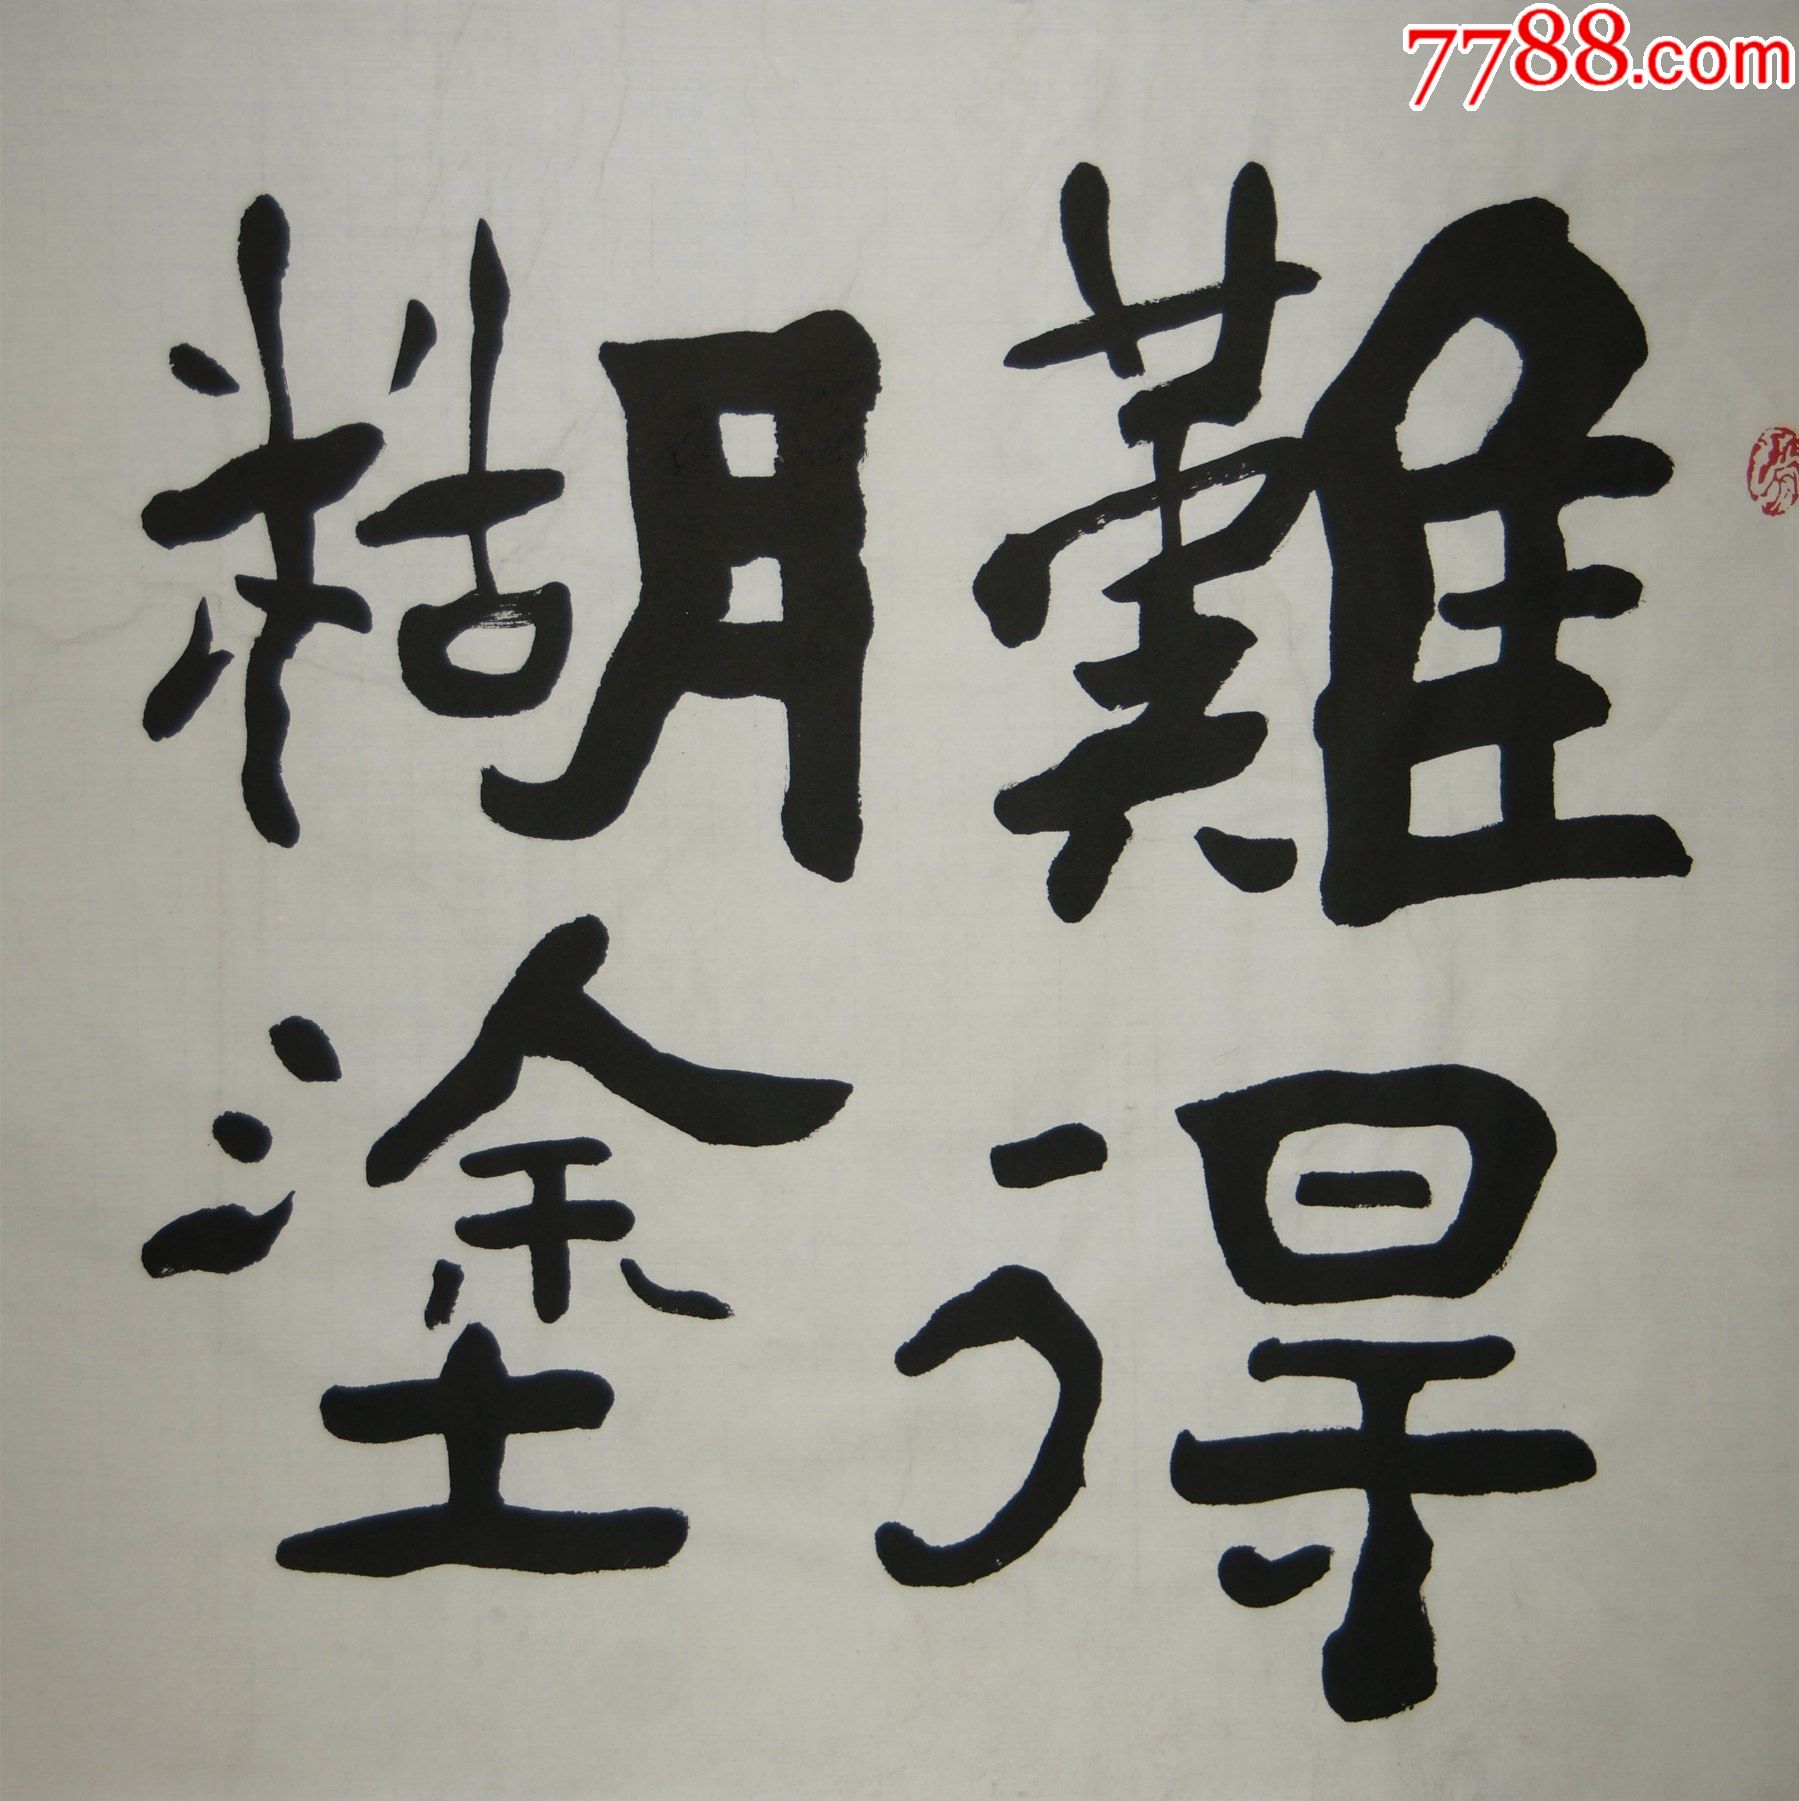 難得
糊塗
7788.com